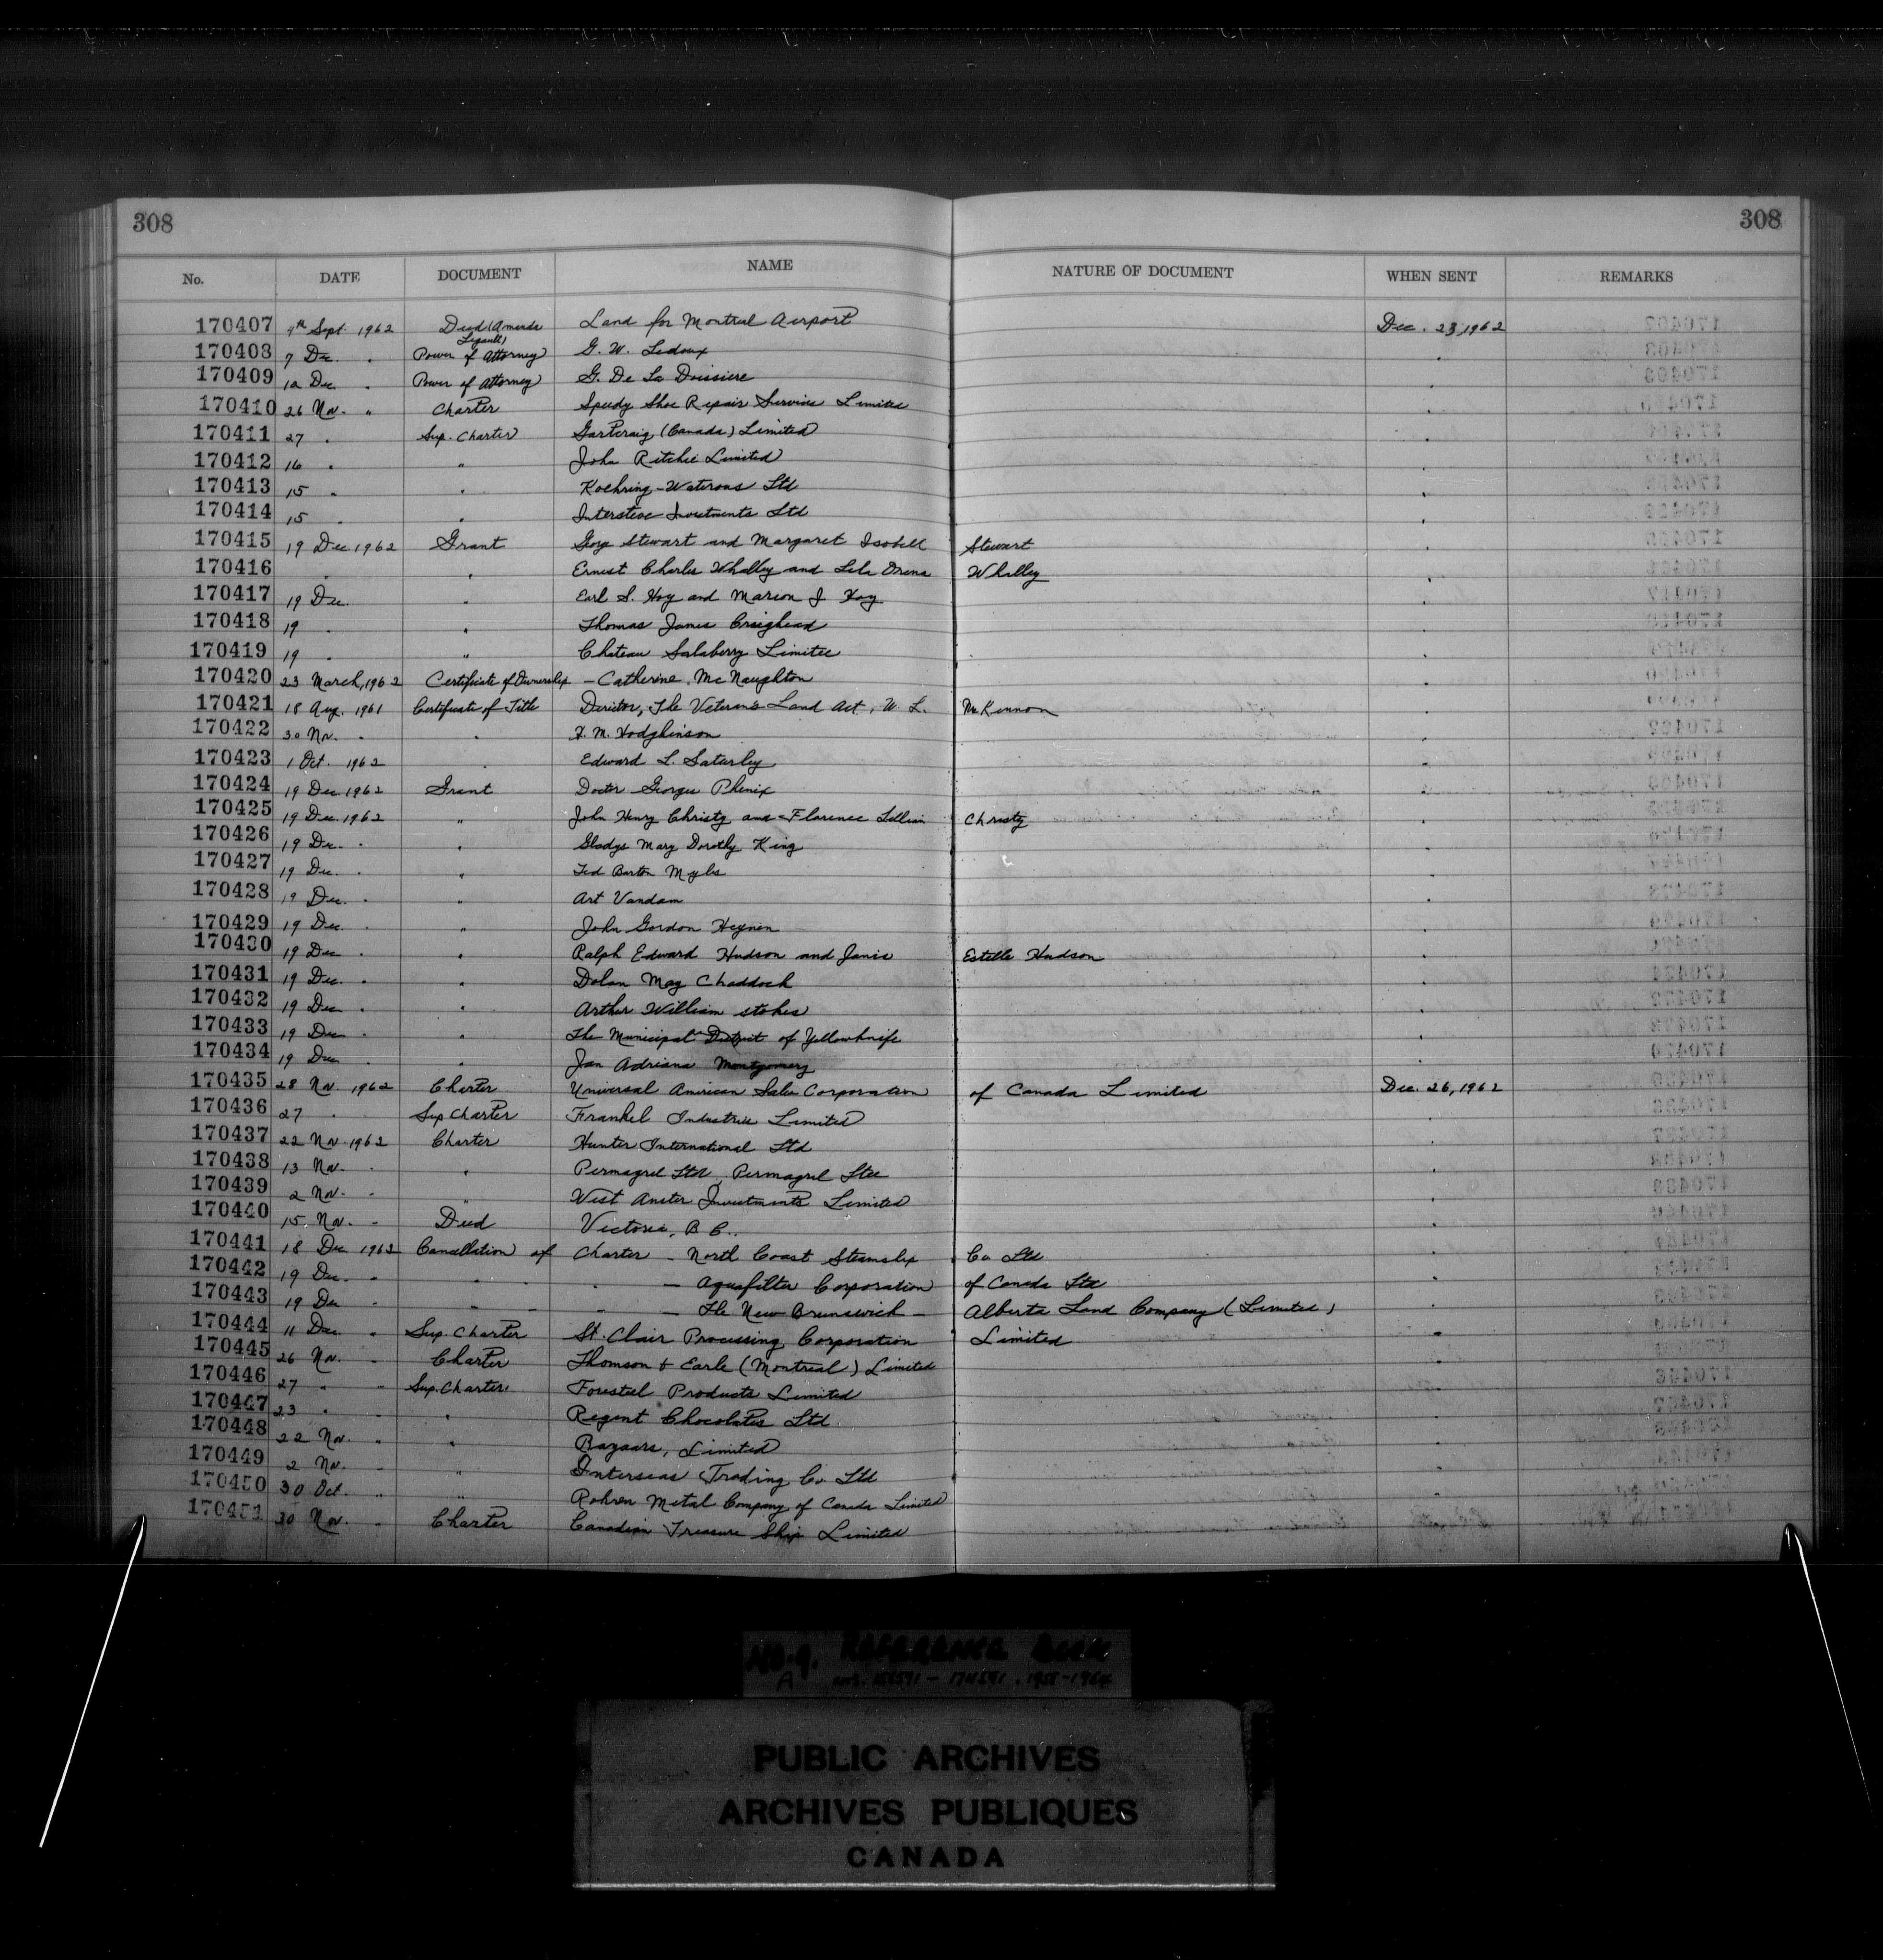 308 308
No. DATE DOCUMENT NAME NATURE OF DOCUMENT WHEN SENT REMARKS
170407 4th Sept. 1962 Deed (Amanda Legault) Land for Montreal Airport Dec. 23, 1962
170408 7 Dec. " Power of Attorney G. W. Ledoux "
170409 12 Dec. " Power of Attorney G. De La "
170410 26 Nov. " Charter Speedy Shoe Repair Services Limited "
170411 27 " Sup. Charter Gartcraig (Canada) Limited "
170412 16 " " John Ritchie Limited "
170413 15 " " Koehring-Waterous Ltd "
170414 15 " " Investments Ltd "
170415 19 Dec. 1962 Grant George Stewart and Margaret Isobell Stewart "
170416 " " Ernest Charles Whalley and Lila Whalley "
170417 19 Dec. " Earl S. Hoy and Marion J Hoy "
170418 19 " " Thomas James Craighead "
170419 19 " " Chateau Salaberry Limitee "
170420 23 March, 1962 Certificate of Ownership - Catherine McNaughton "
170421 18 Aug. 1961 Certificate of Title Director, The Veteran's Land Act, W. L. McKinnon "
170422 30 Nov. " " H. M. Hodgkinson "
170423 1 Oct. 1962 " Edward L. Saturley "
170424 19 Dec. 1962 Grant Doctor Georges Phenix "
170425 19 Dec. 1962 " John Henry Christy and Florence Lillian Christy "
170426 19 Dec. " " Gladys Mary Dorothy King "
170427 19 Dec. " " Ted Barton Myls "
170428 19 Dec. " " Art Vandam "
170429 19 Dec. " " John Gordon Heynen "
170430 19 Dec " " Ralph Edward Hudson and Janis Estelle Hudson "
170431 19 Dec. " " Dolan May Chaddock "
170432 19 Dec " " Arthur William Stokes "
170433 19 Dec " " The Municipal District of Yellowknife "
170434 19 Dec " " Jan Adriana Montgomery "
170435 28 Nov. 1962 Charter Universal American Sales Corporation of Canada Limited Dec. 26, 1962
170436 27 " Sup Charter Frankel Industries Limited
170437 22 Nov 1962 Charter Hunter International Ltd "
170438 13 Nov. " " Permagrel Ltd., Permagrel Ltee "
170439 2 Nov. " " West Anster Investments Limited "
170440 15 Nov. " Deed Victoria, B C. "
170441 18 Dec 1962 Cancellation of Charter - North Coast Steamship Co Ltd "
170442 19 Dec. " " " " - Aquafilter Corporation of Canada Ltd "
170443 19 Dec " " " " - The New Brunswick - Alberta Land Company (Limited) "
170444 11 Dec " Sup. Charter St. Clair Processing Corporation Limited "
170445 26 Nov. " Charter Thomson & Earle (Montreal) Limited "
170446 27 " " Sup. Charter Foresteel Products Limited "
170447 23 " " " Regent Chocolates Ltd "
170448 22 Nov. " " Bazaars, Limited "
170449 2 Nov. " " Interseas Trading Co Ltd "
170450 30 Oct. " " Rohren Metal Company of Canada Limited "
170451 30 Nov. " Charter Canadian Treasure Ship Limited "
NO. 9. REFERENCE BOOK
A
PUBLIC ARCHIVES
ARCHIVES PUBLIQUES
CANADA